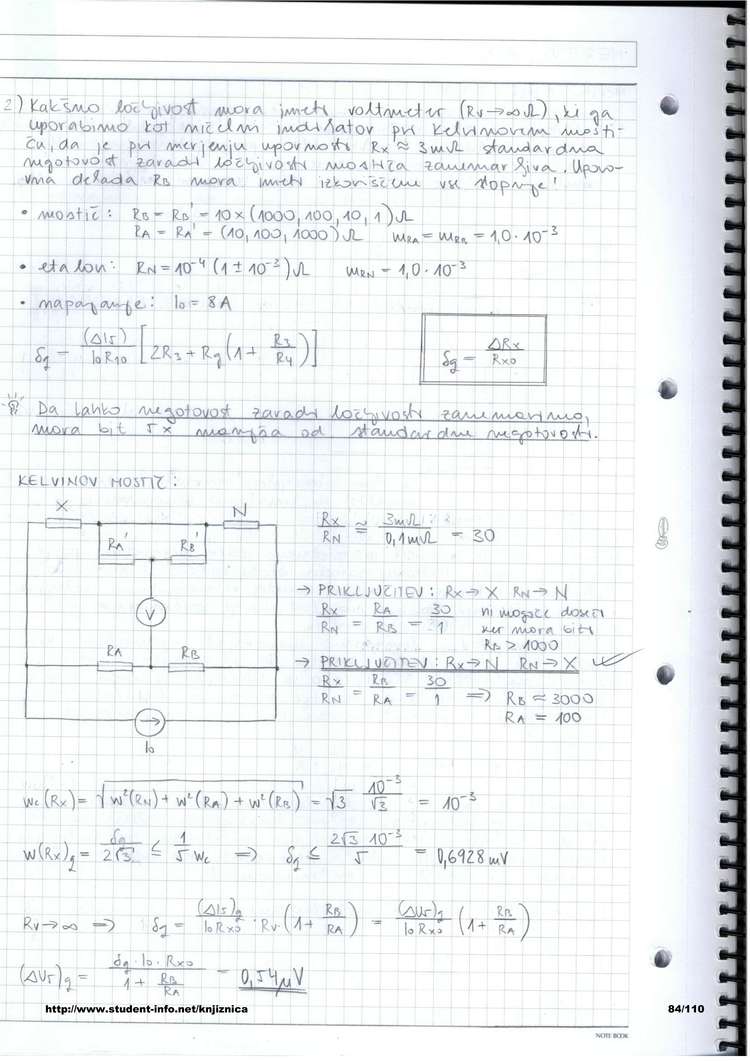 2.) Kakšno ločljivost mora imeti voltmeter (Rv→∞Ω), ki ga
uporabimo kot ničelni indikator pri Kelvinovem mosti-
ču, da je pri merjenju upornosti Rx ≈ 3mΩ standardna
negotovost zaradi ločljivosti mostiča zanemarljiva. Uporo-
vna dekada RB mora imeti izkoriščene vse stopnje!
• mostič: RB = RB' = 10×(1000, 100, 10, 1)Ω
RA = RA' = (10, 100, 1000)Ω mRA = mRB = 1,0·10⁻³
• etalon: RN = 10⁻⁴ (1 ± 10⁻³)Ω mRN = 1,0·10⁻³
• napajanje: I0 = 8A
δq = (ΔI5)/I0R10 [2R3 + Rg(1 + R3/R4)]
δq = ΔRx/Rx0
Da lahko negotovost zaradi ločljivosti zanemarimo,
mora bit 5x manjša od standardne negotovosti.
KELVINOV MOSTIČ:
X N
RA' RB'
V
RA RB
I0
Rx/RN ≅ 3mΩ/0,1mΩ = 30
→ PRIKLJUČITEV: Rx→X RN→N
Rx/RN = RA/RB = 30/1 ni mogoče doseči
ker mora biti
RB > 1000
→ PRIKLJUČITEV: Rx→N RN→X ✓
Rx/RN = RB/RA = 30/1 ⇒ RB ≈ 3000
RA = 100
wc(Rx) = √(w²(RN) + w²(RA) + w²(RB)) = √3 10⁻³/√3 = 10⁻³
w(Rx)q = δq/2√3 ≤ 1/5 wc ⇒ δq ≤ 2√3 10⁻³/5 = 0,6928 mV
Rv→∞ ⇒ δq = (ΔI5)q/I0Rx0 · Rv (1 + RB/RA) = (ΔU5)q/I0Rx0 (1 + RB/RA)
(ΔU5)q = δq·I0·Rx0/1 + RB/RA = 0,54μV
http://www.student-info.net/knjiznica 84/110
NOTE BOOK